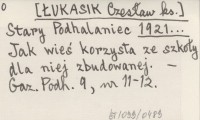 [ŁUKASIK Czesław ks.]
Stary Podhalaniec 1921...
Jak wieś korzysta ze szkoły
dla niej zbudowanej. —
Gaz. Podh. 9, nr 11-12.